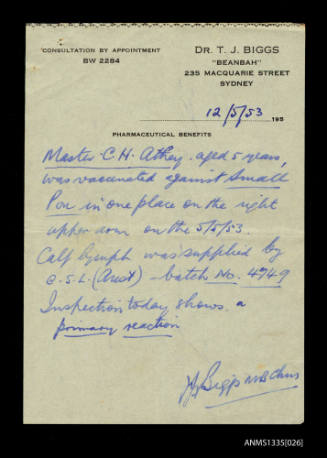 CONSULTATION BY APPOINTMENT
BW 2284
DR. T. J. BIGGS
"BEANBAH"
235 MACQUARIE STREET
SYDNEY
12/5/53 195
PHARMACEUTICAL BENEFITS
Master C. H. Athey. aged 5 years,
was vaccinated against Small
Pox in one place on the right
upper arm on the 5/5/53.
Calf lymph was supplied by
C.S.L. (Aust) - batch No. 4749
Inspection today shows a
primary reaction
Biggs MB ChM
ANMS1335[026]